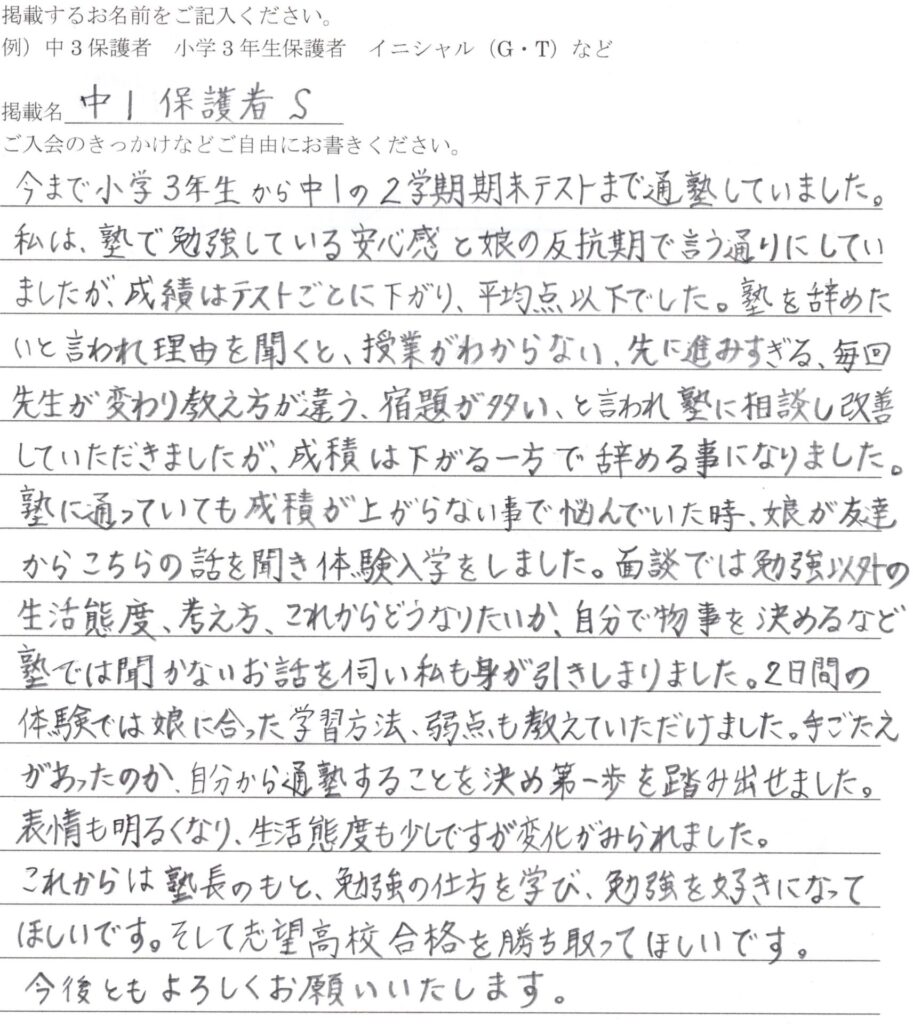 掲載するお名前をご記入ください。
例）中3保護者　小学3年生保護者　イニシャル（G・T）など
掲載名 中1 保護者 S
ご入会のきっかけなどご自由にお書きください。
今まで小学3年生から中1の2学期期末テストまで通塾していました。
私は、塾で勉強している安心感と娘の反抗期で言う通りにしてい
ましたが、成績はテストごとに下がり、平均点以下でした。塾を辞めた
いと言われ理由を聞くと、授業がわからない、先に進みすぎる、毎回
先生が変わり教え方が違う、宿題が多い、と言われ塾に相談し改善
していただきましたが、成積は下がる一方で辞める事になりました。
塾に通っていても成積が上がらない事で悩んでいた時、娘が友達
からこちらの話を聞き体験入学をしました。面談では勉強以外の
生活態度、考え方、これからどうなりたいか、自分で物事を決めるなど
塾では聞かないお話を伺い私も身が引きしまりました。2日間の
体験では娘に合った学習方法、弱点も教えていただけました。手ごたえ
があったのか、自分から通塾することを決め第一歩を踏み出せました。
表情も明るくなり、生活態度も少しですが変化がみられました。
これからは塾長のもと、勉強の仕方を学び、勉強を好きになって
ほしいです。そして志望高校合格を勝ち取ってほしいです。
今後ともよろしくお願いいたします。